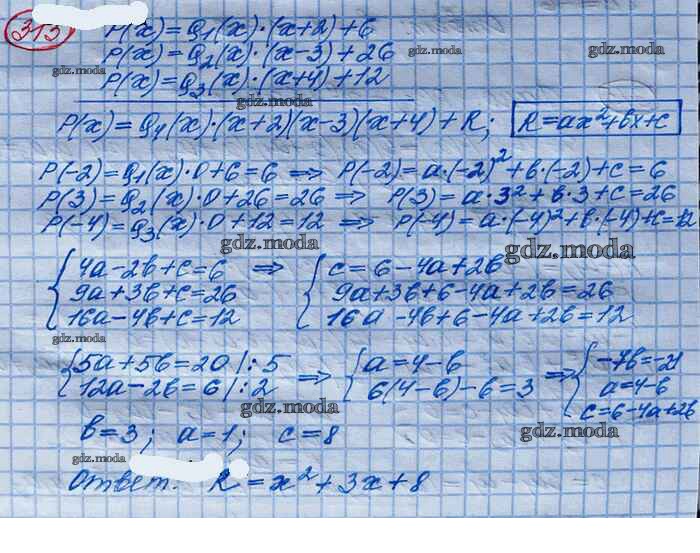 313
P(x)=Q₁(x)·(x+2)+6
P(x)=Q₂(x)·(x-3)+26
P(x)=Q₃(x)·(x+4)+12
P(x)=Q₄(x)·(x+2)(x-3)(x+4)+R; R=ax²+bx+c
P(-2)=Q₁(x)·0+6=6 ⇒ P(-2)=a·(-2)²+b·(-2)+c=6
P(3)=Q₂(x)·0+26=26 ⇒ P(3)=a·3²+b·3+c=26
P(-4)=Q₃(x)·0+12=12 ⇒ P(-4)=a·(-4)²+b·(-4)+c=12
{4a-2b+c=6 ⇒ {c=6-4a+2b
9a+3b+c=26 9a+3b+6-4a+2b=26
16a-4b+c=12 16a-4b+6-4a+2b=12
{5a+5b=20|:5 ⇒ {a=4-b ⇒ {-7b=-21
12a-2b=6|:2 6(4-b)-b=3 a=4-b
c=6-4a+2b
b=3; a=1; c=8
Ответ. R=x²+3x+8
gdz.moda
gdz.moda
gdz.moda
gdz.moda
gdz.moda
gdz.moda
gdz.moda
gdz.moda
gdz.moda
gdz.moda
gdz.moda
gdz.moda
gdz.moda